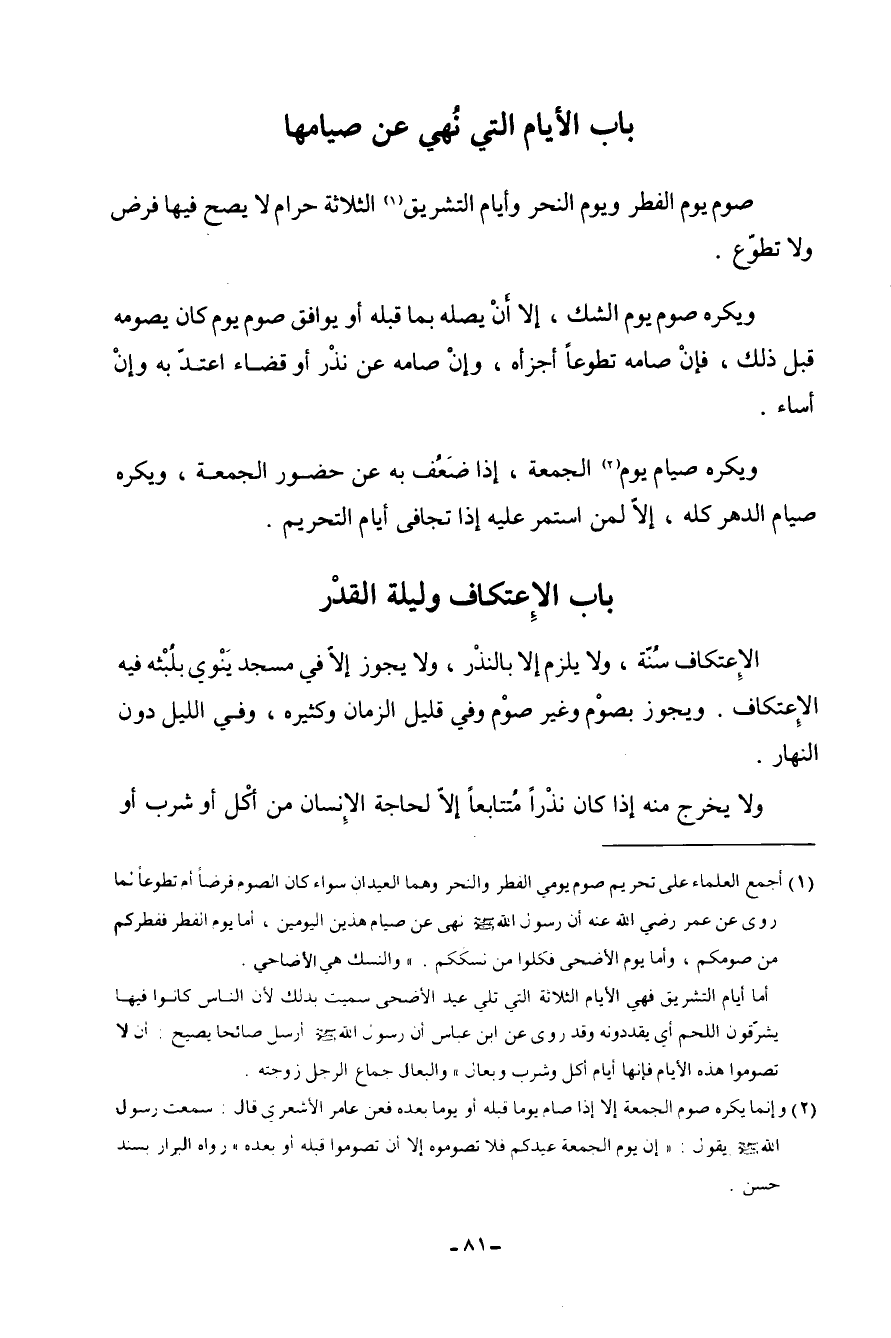 باب الأيام التي نُهي عن صيامها
صوم يوم الفطر ويوم النحر وأيام التشريق(١) الثلاثة حرام لا يصح فيها فرض
ولا تطوّع .
ويكره صوم يوم الشك ، إلا أَنْ يصله بما قبله أو يوافق صوم يوم كان يصومه
قبل ذلك ، فإنْ صامه تطوعاً أجزأه ، وإنْ صامه عن نذْر أو قضاء اعتدّ به وإنْ
أساء .
ويكره صيام يوم(٢) الجمعة ، إذا ضَعُف به عن حضور الجمعة ، ويكره
صيام الدهر كله ، إلاّ لمن استمر عليه إذا تجافى أيام التحريم .
باب الإعتكاف وليلة القدْر
الإعتكاف سُنّة ، ولا يلزم إلا بالنذْر ، ولا يجوز إلاّ في مسجد يَنْوي بلُبْثه فيه
الإعتكاف . ويجوز بصوْم وغير صوْم وفي قليل الزمان وكثيره ، وفي الليل دون
النهار .
ولا يخرج منه إذا كان نذْراً مُتتابعاً إلاّ لحاجة الإنسان من أكْل أو شرب أو
(١) أجمع العلماء على تحريم صوم يومي الفطر والنحر وهما العيدان سواء كان الصوم فرضاً أم تطوعاً لما
روى عن عمر رضي الله عنه أن رسول الله ﷺ نهى عن صيام هذين اليومين ، أما يوم الفطر ففطركم
من صومكم ، وأما يوم الأضحى فكلوا من نسككم . » والنسك هي الأضاحي .
أما أيام التشريق فهي الأيام الثلاثة التي تلي عيد الأضحى سميت بدلك لأن الناس كانوا فيها
يشرّقون اللحم أي يقددونه وقد روى عن ابن عباس أن رسول الله ﷺ أرسل صائحا يصيح : أن لا
تصوموا هذه الأيام فإنها أيام أكل وشرب وبعال » والبعال جماع الرجل زوجته .
(٢) وإنما يكره صوم الجمعة إلا إذا صام يوما قبله أو يوما بعده فعن عامر الأشعري قال : سمعت رسول
الله ﷺ يقول : « إن يوم الجمعة عيدكم فلا تصوموه إلا أن تصوموا قبله أو بعده » رواه البزار بسند
حسن .
- ٨١ -